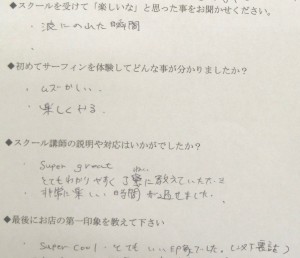 ◆スクールを受けて「楽しいな」と思った事をお聞かせください。
・波にのれた瞬間
・
◆初めてサーフィンを体験してどんな事が分かりましたか?
・ムズかしい
・楽しくやる
◆スクール講師の説明や対応はいかがでしたか?
・Super great
とてもわかりやすく丁寧に教えていただき
非常に楽しい時間が過せました.
◆最後にお店の第一印象を教えて下さい
・Super cool・とてもいい印象でした。(以下裏話)